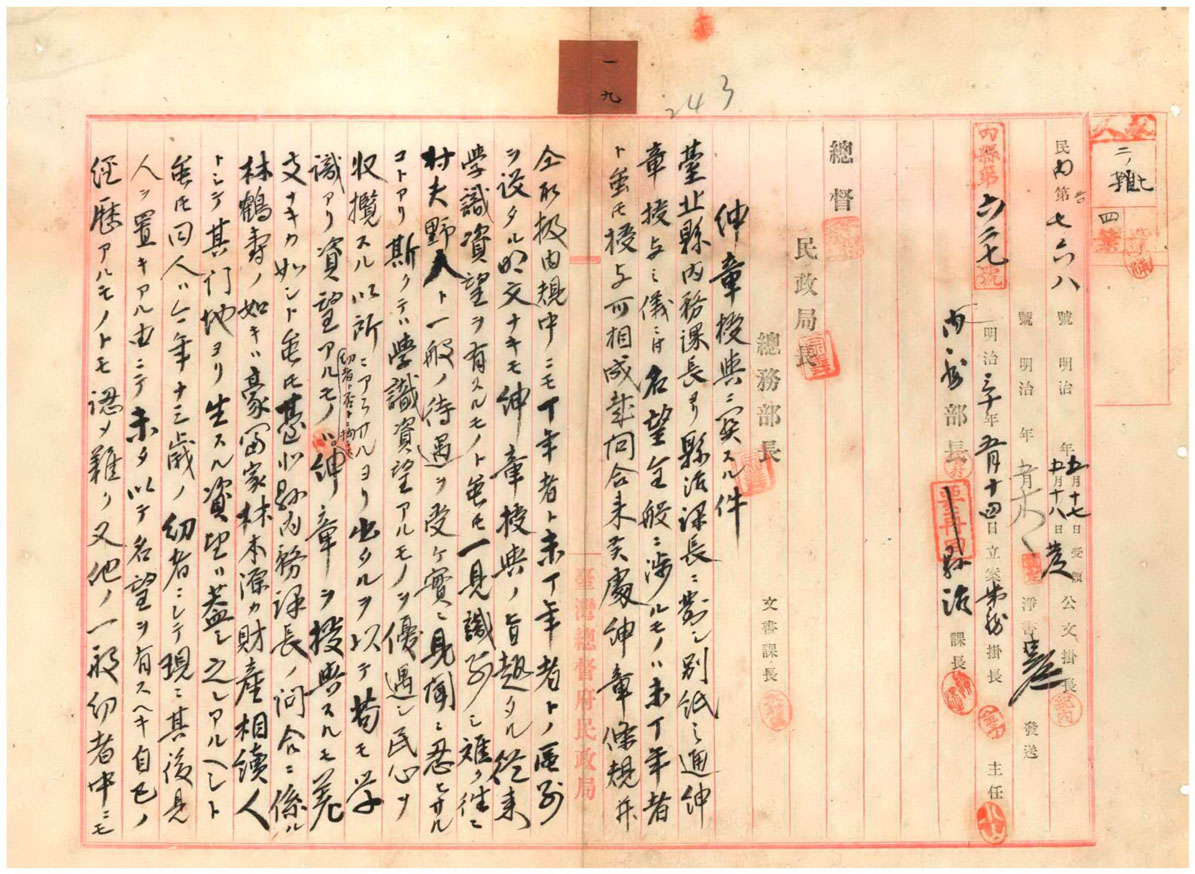 一九
243
二ノ雜
四葉
民內第七六八號
明治 年 五月十七日受領
公文掛長
號 明治 年 五月十八日
淨書
發送
內縣第六二七號
明治三十年五月十四日立案
掛長
主任
內務部長
縣治課長
總督
民政局長
總務部長
文書課長
紳章授與ニ關スル件
臺北縣內務課長ヨリ縣治課長ニ對シ別紙之通紳
章授与之儀ニ付名望全般ニ涉ルモノハ未丁年者
ト雖モ授与可相成哉問合来矣處紳章條規并
仝取扱內規中ニモ丁年者ト未丁年者トノ區別
ヲ設タル明文ナキモ紳章授與ノ旨趣タル從来
學識資望ヲ有スルモノト雖モ一見識別シ難ク往々
村夫野人ト一般ノ待遇ヲ受ケ實ニ見聞ニ忍ヒサル
コトアリ斯クテハ學識資望アルモノヲ優遇シ民心ヲ
收攬スル以所ニアラサルヨリ出タルヲ以テ苟モ学
識アリ資望アルモノハ
紳章ヲ授與スルモ差
支ナキカ如シト雖モ臺北縣內務課長ノ問合ニ係ル
林鶴壽ノ如キハ豪富家林本源カ財產相續人
トシテ其門地ヨリ生スル資望ハ蓋シ之レアルヘシト
雖モ同人ハ今年十三歲ノ幼者ニシテ現ニ其後見
人ヲ置キアル由ニテ未タ以テ名望ヲ有スヘキ自己ノ
經歷アルモノトモ認メ難ク又他ノ一般幼者中ニモ
臺灣總督府民政局